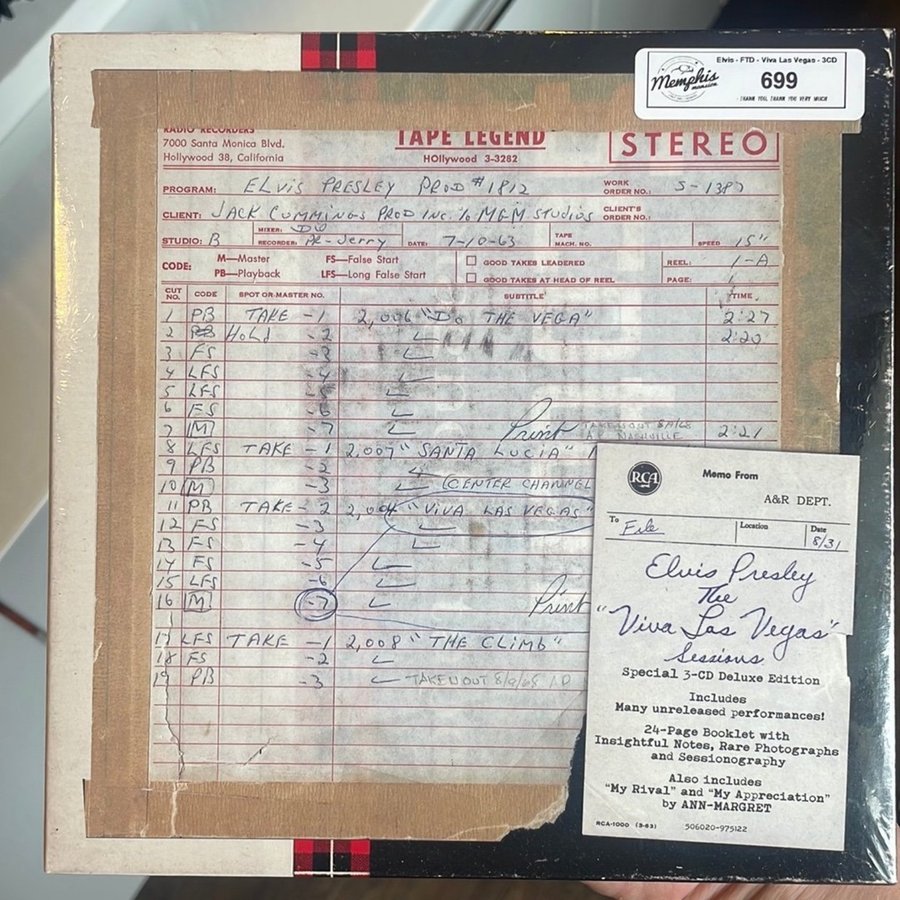 Elvis - FTD - Viva Las Vegas - 3CD
Memphis
mansion
699
THANK YOU, THANK YOU VERY MUCH
RADIO RECORDERS
7000 Santa Monica Blvd.
Hollywood 38, California
TAPE LEGEND
HOllywood 3-3282
STEREO
PROGRAM: ELVIS PRESLEY PROD #1812
WORK ORDER NO.: S-1387
CLIENT: JACK CUMMINGS PROD INC. % MGM STUDIOS
CLIENT'S ORDER NO.:
STUDIO: B
MIXER:
RECORDER: PR-Jerry
DATE: 7-10-63
TAPE MACH. NO.
SPEED 15"
CODE: M—Master FS—False Start
PB—Playback LFS—Long False Start
GOOD TAKES LEADERED
GOOD TAKES AT HEAD OF REEL
REEL: 1-A
PAGE: 1
CUT NO. CODE SPOT OR MASTER NO. SUBTITLE TIME
1 PB TAKE -1 2,006 "Do THE VEGA" 2:27
2 PB Hold -2 2:20
3 FS -3
4 LFS -4
5 LFS -5
6 FS -6
7 M -7 Print TAKEN OUT 8/9/68 NASHVILLE 2:21
8 LFS TAKE -1 2,007 "SANTA LUCIA"
9 PB -2
10 M -3 (CENTER CHANNEL
11 PB TAKE -2 2,004 "VIVA LAS VEGAS"
12 FS -3
13 FS -4
14 FS -5
15 LFS -6
16 M -7 Print
17 LFS TAKE -1 2,008 "THE CLIMB"
18 FS -2
19 PB -3 TAKEN OUT 8/9/68
RCA
Memo From
A&R DEPT.
To File
Location
Date 8/31
Elvis Presley
The
"Viva Las Vegas"
Sessions
Special 3-CD Deluxe Edition
Includes
Many unreleased performances!
24-Page Booklet with
Insightful Notes, Rare Photographs
and Sessionography
Also includes
"My Rival" and "My Appreciation"
by ANN-MARGRET
RCA-1000 (3-63) 506020-975122